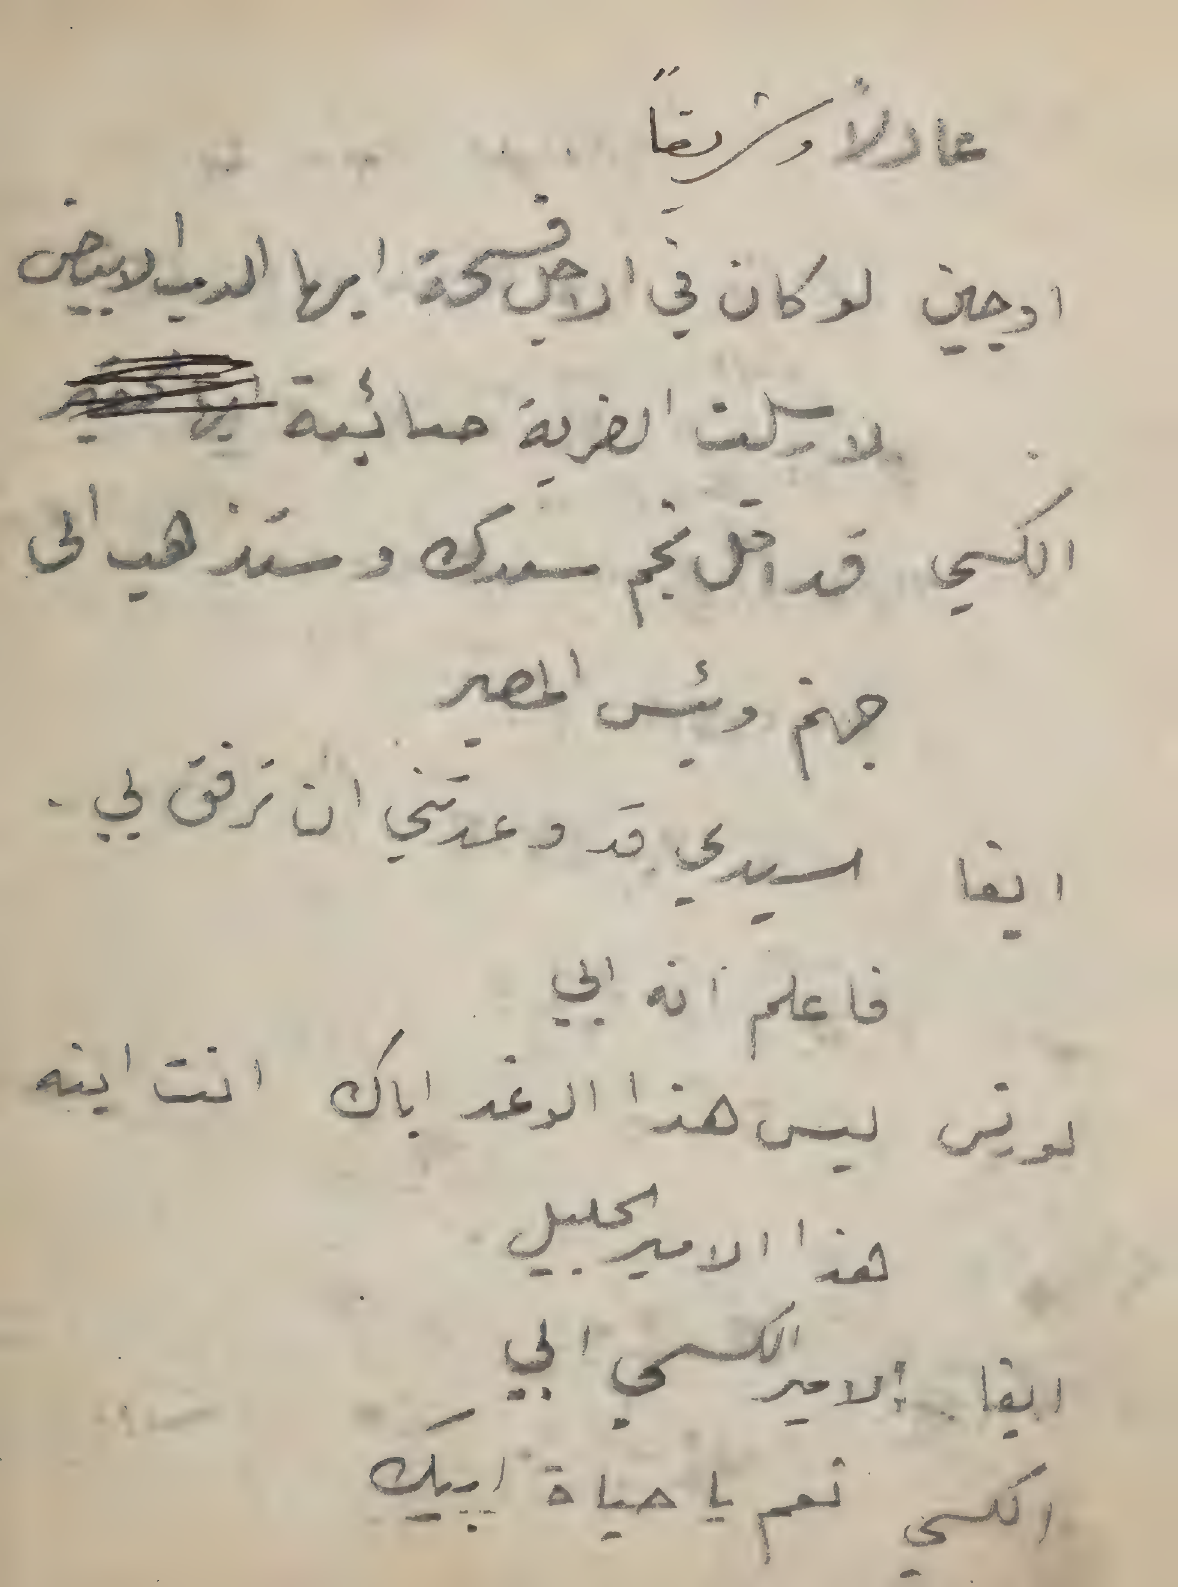 عادلاً وشريفاً
اوجين لو كان في الاجل فسحة ايها الدب الابيض
لارسلت الضربة صائبة
الكسي قد افل نجم سعدك وستذهب الى
جهنم وبئس المصير
ايفا سيدي قد وعدتني ان ترفق بي .
فاعلم انه ابي
لوريس ليس هذا الوغد اباك انت ابنة
هذا الامير الجليل
ايفا الامير الكسي ابي
الكسي نعم يا حياة ابيك